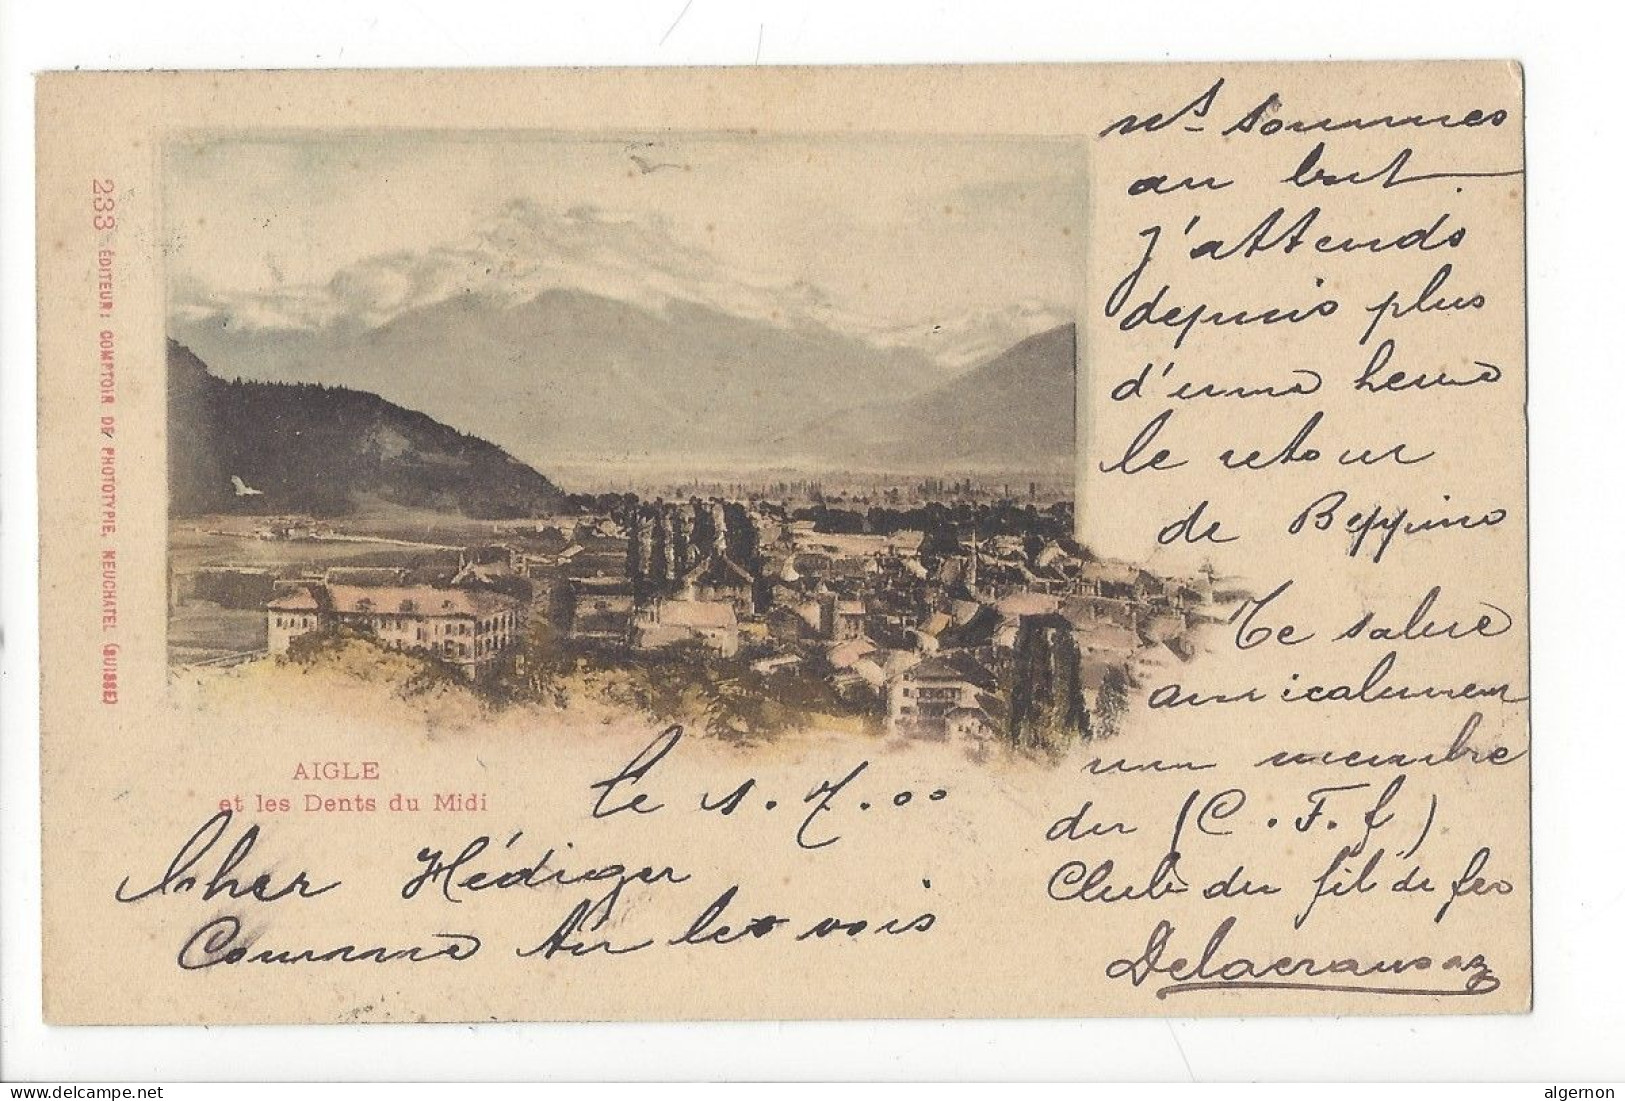 233 ÉDITEUR: COMPTOIR DE PHOTOTYPIE, NEUCHATEL (SUISSE)
AIGLE
et les Dents du Midi
le 1.7.00
Cher Hédiger
Comme tu le vois
ns sommes
au but.
J'attends
depuis plus
d'une heure
le retour
de Beppino
Te salue
amicalement
un membre
du (C.F.f)
Club du fil de fer
Delacrausaz
delcampe.net
algernon